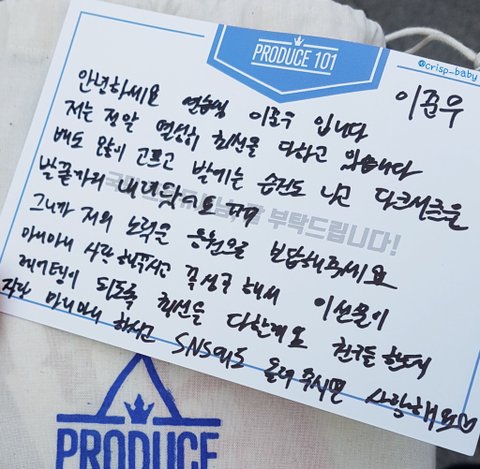 PRODUCE 101
@crisp_baby
이준우
안녕하세요 연습생 이준우 입니다
저는 정말 열심히 최선을 다하고 있습니다
배도 많이 고프고 발에는 습진도 나고 다크서클은
발끝까지 내려왔어요 ㅠㅠ
부탁드립니다!
그니까 저의 노력을 응원으로 보답해주세요
마니마니 사랑해주시고 꼭 성공해서 이 선물이
레어템이 되도록 최선을 다할게요 친구들 한테
자랑 마니마니 하시고 SNS에도 올려주시면 사랑해요♡
PRODUCE